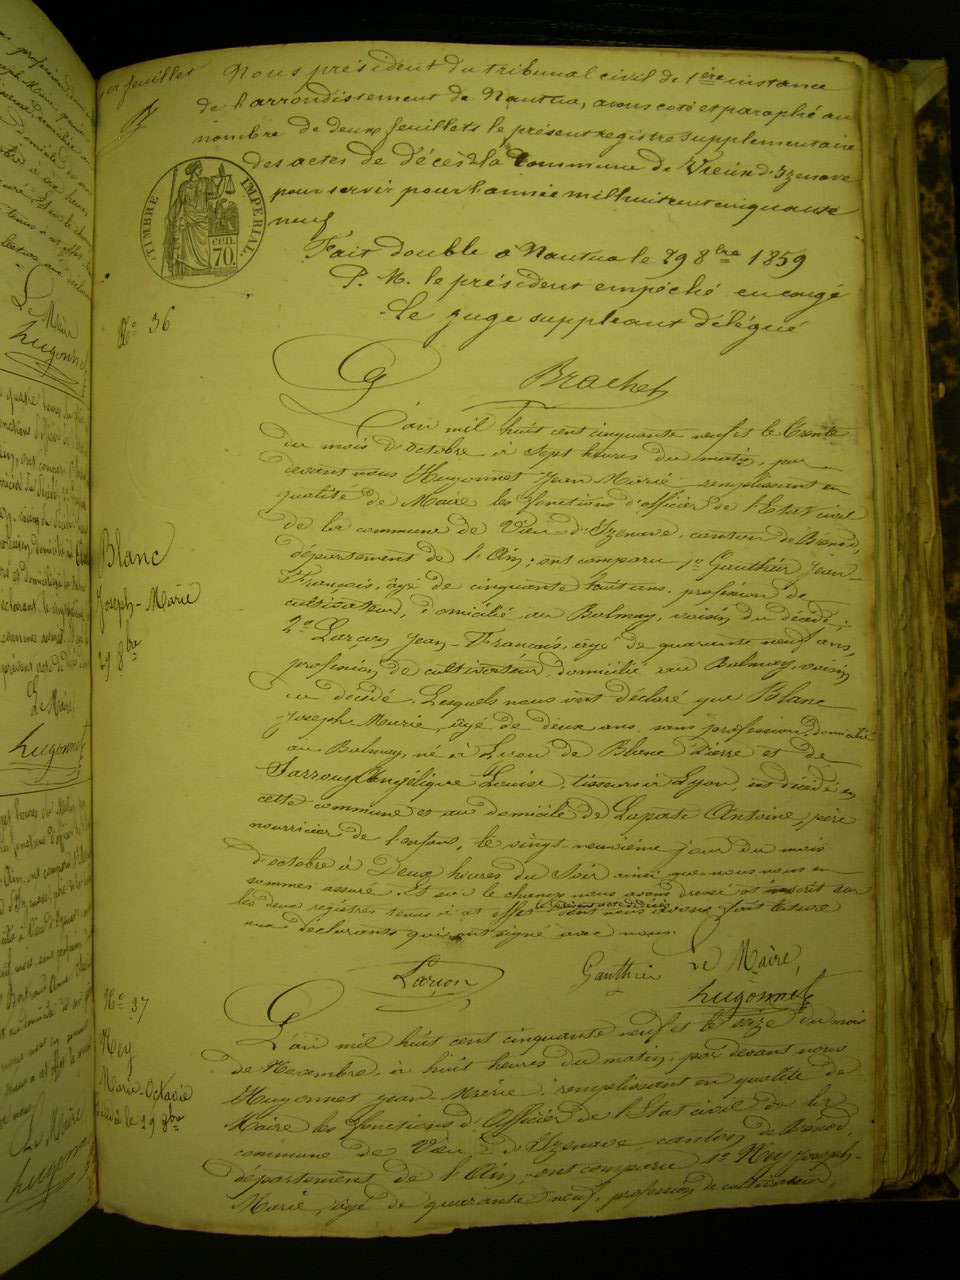 1er feuillet
Nous président du tribunal civil de 1ère instance
de l'arrondissement de Nantua, avons coté et paraphé au
nombre de deux feuillets le présent registre supplémentaire
des actes de décès de la Commune de Vieu d'Izenave
pour servir pour l'année mil huit cent cinquante
neuf
TIMBRE IMPERIAL.
CEN.
70.
Fait double à Nantua le 29 8bre 1859
P. M. le président empêché en congé
Le juge suppléant délégué
Brachet
No 36
Blanc
Joseph-Marie
29 8bre
L'an mil huit cent cinquante neuf et le trente
du mois d'octobre à sept heures du matin, par
devant nous Hugonnet Jean Marie remplissant en
qualité de Maire les fonctions d'officier de l'Etat civil
de la commune de Vieu d'Izenave, canton de Brenod,
département de l'Ain; ont comparu 1o Gauthier Jean-
François, âgé de cinquante huit ans, profession de
cultivateur, domicilié au Balmay, voisin du décédé;
2o Larçon Jean-François, âgé de quarante neuf ans,
profession de cultivateur, domicilié au Balmay, voisin
du décédé. Lesquels nous ont déclaré que Blanc
Joseph-Marie, âgé de deux ans, sans profession, domicilié
au Balmay, né à Lyon de Blanc Pierre et de
Angélique Louise, tisseurs à Lyon, est décédé en
cette commune et au domicile de Laporte Antoine, père
nourricier de l'enfant, le vingt-neuvième jour du mois
d'octobre à Deux heures du Soir ainsi que nous nous en
sommes assuré. Et sur le champ nous avons dressé et inscrit sur
les deux registres tenus à cet effet le présent acte de décès dont nous avons fait lecture
aux déclarants qui ont signé avec nous.
Larçon
Gauthier
Le Maire,
Hugonnet
No 37
Ney
Marie-Octavie
L'an mil huit cent cinquante neuf et le seize du mois
de Novembre, à huit heures du matin; par devant nous
Hugonnet Jean-Marie, remplissant en qualité de
Maire les fonctions d'Officier de l'Etat civil de la
commune de Vieu d'Izenave, canton de Brenod,
département de l'Ain, ont comparu 1o Ney Joseph-
Marie, âgé de quarante neuf, profession de cultivateur,
Le Maire
Hugonnet
Le Maire,
Hugonnet
Le Maire